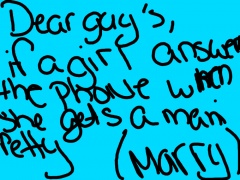 Dear guy's,
if a girl answer
the PHONe wHen
she gets a mani
Petty (Marry)